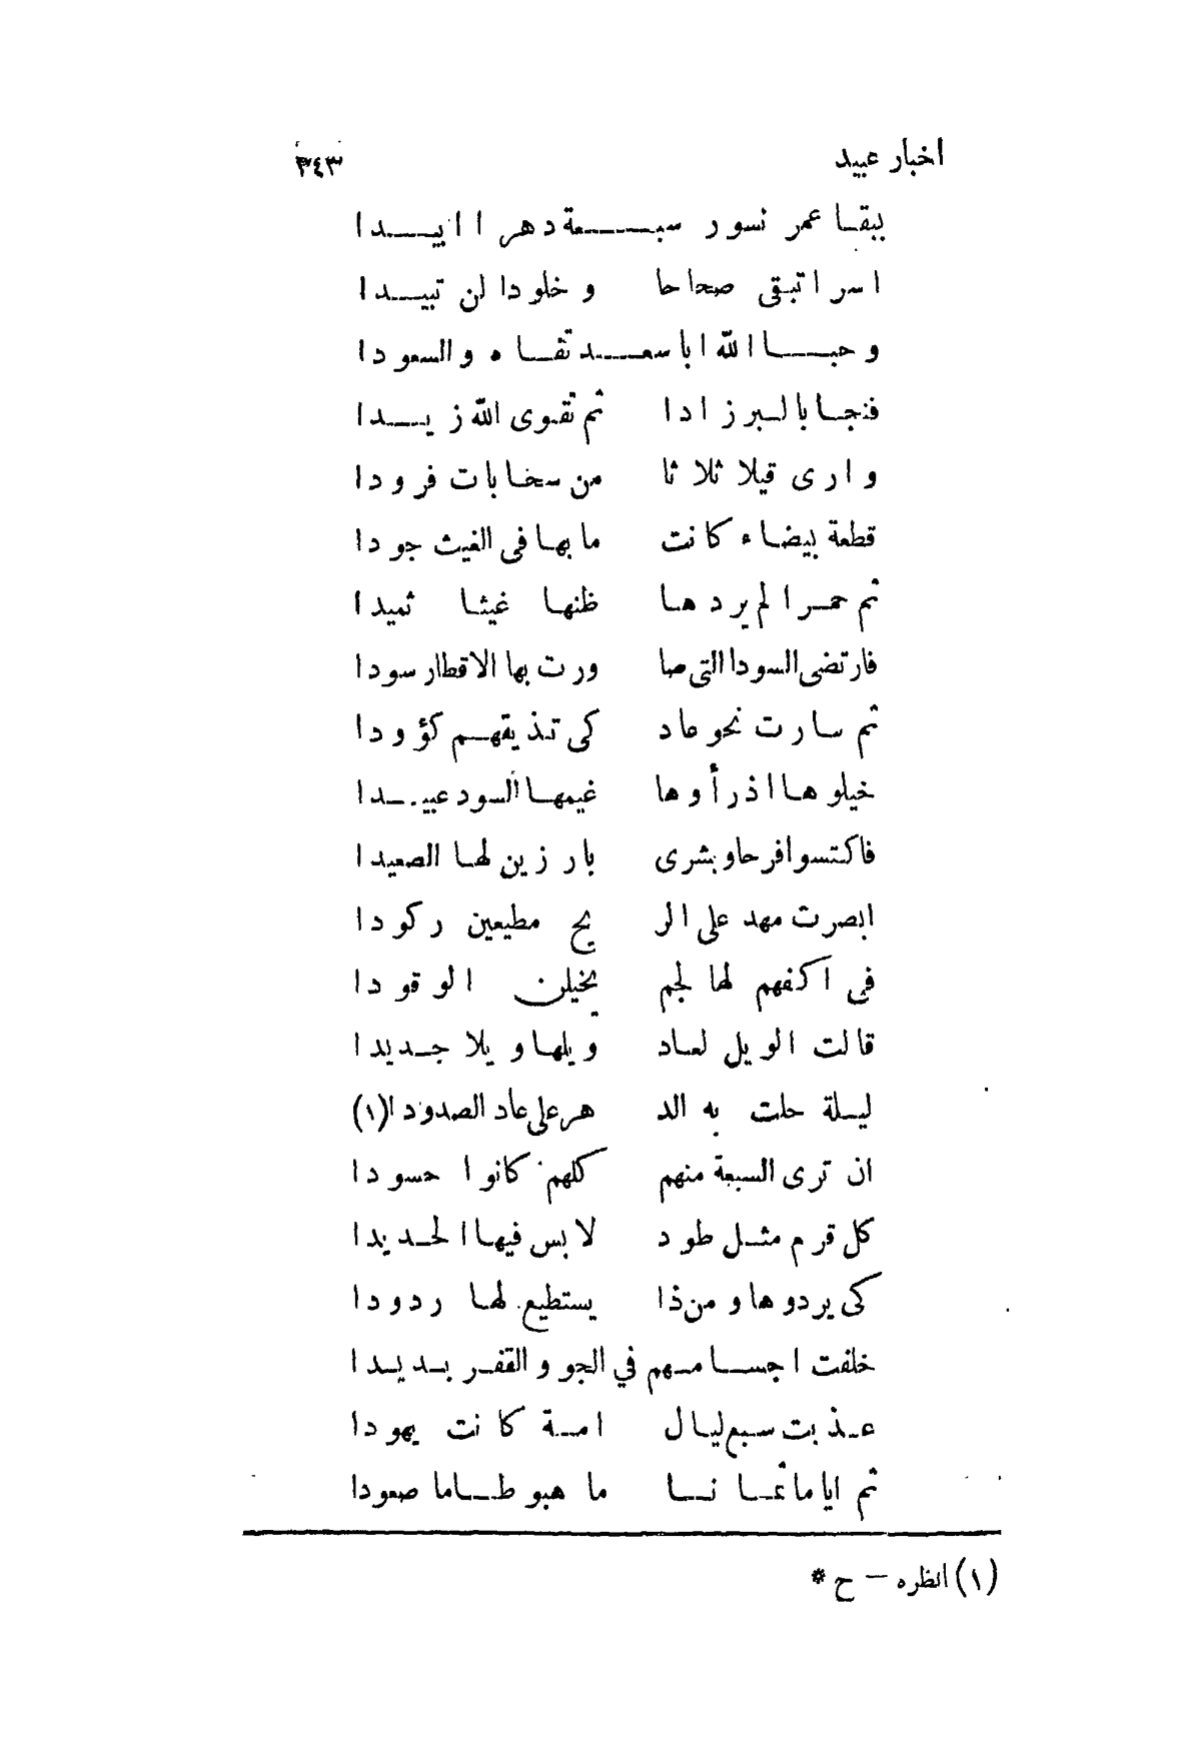 اخبار عبيد ٣٤٣
ببقا عمر نسور سبعة دهرا ابيدا
اسرا تبقى صحاحا وخلودا لن تبيدا
وحبا الله ابا سعد تقاه والسعودا
فنجا بالبر زادا ثم تقوى الله زيدا
وارى قيلا ثلاثا من سحابات فرودا
قطعة بيضاء كانت ما بها فى الغيث جودا
ثم حمرا لم يردها ظنها غيثا ثميدا
فارتضى السودا التى صا ورت بها الاقطار سودا
ثم سارت نحو عاد كى تذيقهم كؤودا
خيلوها اذ رأوها غيمها السود عبيدا
فاكتسوا فرحا وبشرى بارزين لها الصعيدا
ابصرت مهد على الر يح مطيعين ركودا
فى اكفهم لها لجم يخيلن الوقودا
قالت الويل لعاد ويلها ويلا جديدا
ليلة حلت به الد هر على عاد الصدودا (١)
ان ترى السبعة منهم كلهم كانوا حسودا
كل قرم مثل طود لابس فيها الحديدا
كى يردوها ومن ذا يستطيع لها ردودا
خلفت اجسامهم في الجو والقفر بديدا
عذبت سبع ليال امة كانت يهودا
ثم اياما ثمانا ما هبوطا ما صعودا
(١) انظره – ح *